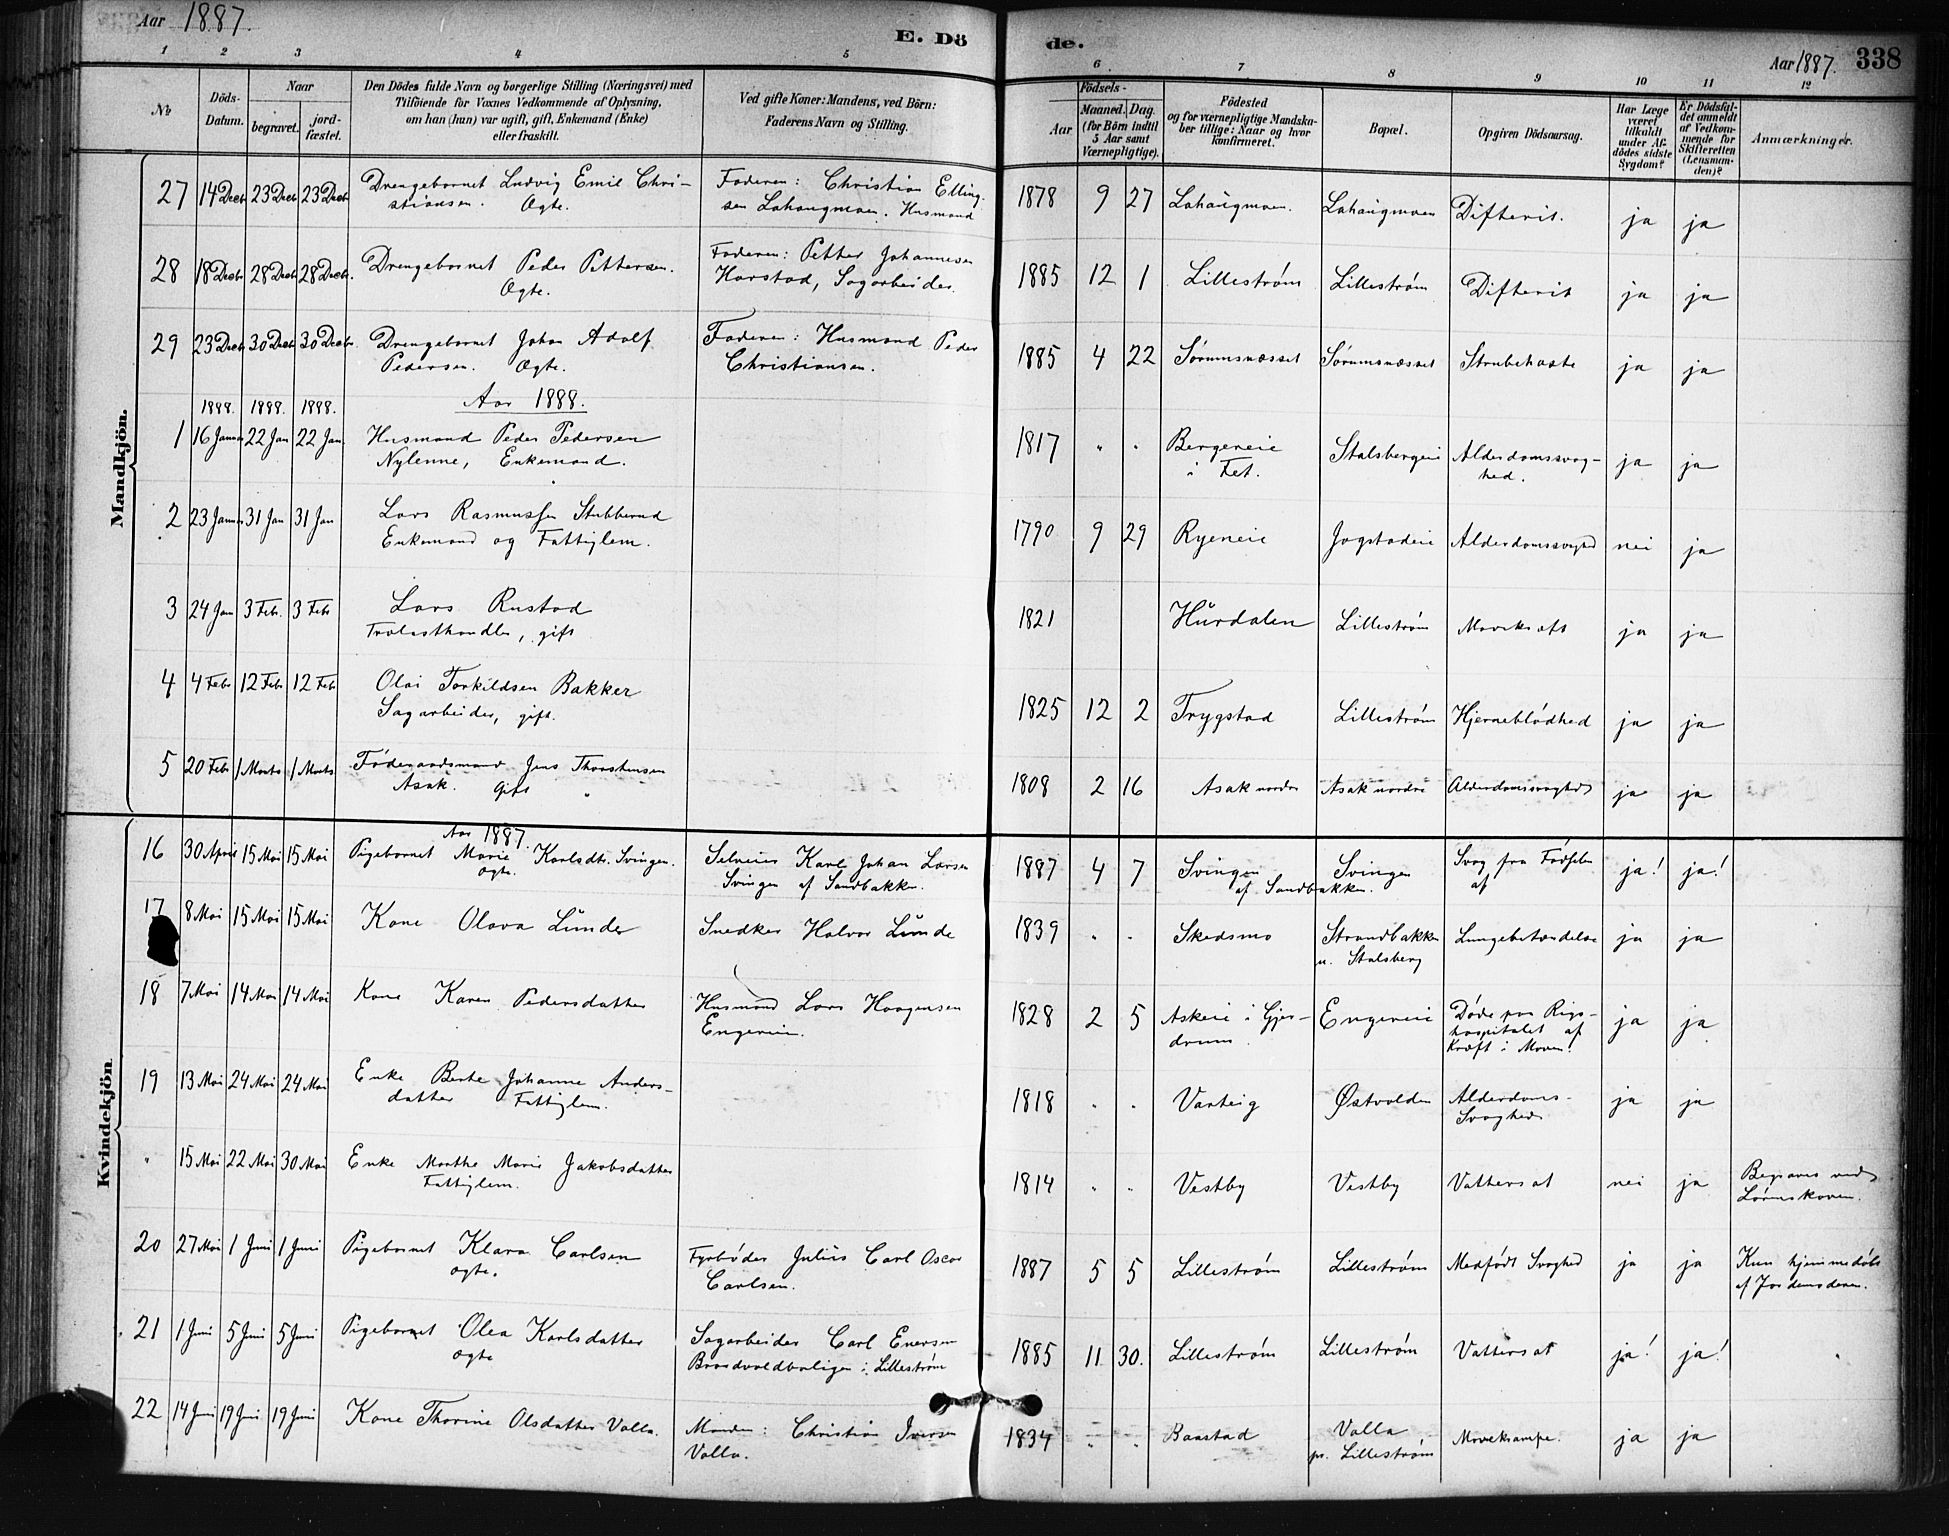 Aar 1887.
E. Dö
de.
Aar 1887. 338
1 2 3 4 5
6 7 8 9 10 11 12
№
Döds-
Datum.
Naar
begravet.
jord-
fæstet.
Den Dödes fulde Navn og borgerlige Stilling (Næringsvei) med
Tilföiende for Voxnes Vedkommende af Oplysning,
om han (hun) var ugift, gift, Enkemand (Enke)
eller fraskilt.
Ved gifte Koner: Mandens, ved Börn:
Faderens Navn og Stilling.
Födsels-
Aar
Maaned. Dag.
(for Börn indtil
5 Aar samt
Værnepligtige).
Födested
og for værnepligtige Mandska-
ber tillige: Naar og hvor
konfirmeret.
Bopæl.
Opgiven Dödsaarsag.
Har Læge
været
tilkaldt
under Af-
dödes sidste
Sygdom?
Er Dödsfal-
det anmeldt
af Vedkom-
mende for
Skifteretten
(Lensman-
den)?
Anmærkninger.
Mandkjön.
27 14 Decb 23 Decb 23 Decb Drengebarnet Ludvig Emil Chri- Faderen: Christian Elling- 1878 9 27 Lahaugmoen. Lahaugmoen Difterit. ja ja
stiansen. Ægte. sen Lahaugmoen. Husmand
28 18 Decb 28 Decb 28 Decb. Drengebarnet Peder Pettersen. Faderen: Petter Johannesen 1885 12 1 Lillestrøm Lillestrøm Difterit ja ja
Ægte. Harstad, Sagarbeider.
29 23 Decb 30 Decb 30 Decb. Drengebarnet Johan Adolf Faderen: Husmand Peder 1885 4 22 Sørumsnæsset Sørumsnæsset Strubehoste ja ja
Pedersen. Ægte. Christiansen.
1888. 1888. 1888. Aar 1888.
1 16 Januar 22 Jan 22 Jan. Husmand Peder Pedersen 1817 " " Bergereie Stalsbergeie Alderdomssvag- ja ja
Nylenne, Enkemand. i Fet. hed.
2 23 Januar 31 Jan 31 Jan Lars Rasmussen Stubberud 1790 9 29 Ryeneie Jogstadeie Alderdomssvaghed nei ja
Enkemand og Fattiglem.
3 24 Jan 3 Feb. 3 Feb Lars Rustad 1821 Hurdalen Lillestrøm Mavekræft ja ja
Trælasthandler, gift
4 4 Feb 12 Feb 12 Feb Olai Torkildsen Bakker 1825 12 2 Trygstad Lillestrøm Hjerneblødhed ja ja
Sagarbeider, gift.
5 20 Feb 1 Marts 1 Marts Føderaadsmand Jens Thorstensen 1808 2 16 Asak nordre Asak nordre Alderdomssvaghed ja ja
Asak. Gift
Kvindekjön
Aar 1887.
16 30 April 15 Mai 15 Mai Pigebarnet Marie Karlsdtr. Svingen. Selveier Karl Johan Larsen 1887 4 7 Svingen Svingen Svag fra Fødselen ja! ja!
ægte. Svingen af Sandbakken. af Sandbakken. af
17 8 Mai 15 Mai 15 Mai Kone Olava Lunde Snedker Halvor Lunde 1839 " " Skedsmo Strandbakken Lungebetændelse ja ja
u. Stalsberg
18 7 Mai 14 Mai 14 Mai Kone Karen Pedersdatter Husmand Lars Haagensen 1828 2 5 Askeie i Gjer- Engereie Døde paa Rigs- ja ja
Engereie. drum. hospitalet af
Kræft i Maven!
19 13 Mai 24 Mai 24 Mai Enke Berte Johanne Anders- 1818 " " Varteig Østvolden Alderdoms- ja ja
datter Fattiglem. Svaghed
" 15 Mai 22 Mai 30 Mai Enke Marthe Marie Jakobsdatter 1814 " " Vestby Vestby Vattersot nei ja Begraves ved
Fattiglem. Lørenskoven.
20 27 Mai 1 Juni 1 Juni Pigebarnet Klara Carlsen Fyrbøder Julius Carl Oscar 1887 5 5 Lillestrøm Lillestrøm Medfødt Svaghed ja ja Kun hjemmedøbt
ægte. Carlsen. af Jordemoderen.
21 1 Juni 5 Juni 5 Juni Pigebarnet Olea Karlsdatter Sagarbeider Carl Enersen 1885 11 30. Lillestrøm Lillestrøm Vattersot ja! ja!
ægte i Lillestrøm
22 14 Juni 19 Juni 19 Juni Kone Thorine Olsdatter Valla. Manden: Christian Iversen 1834 " " Baastad Valla Mavekrampe. ja ja
Valla. pr. Lillestrøm